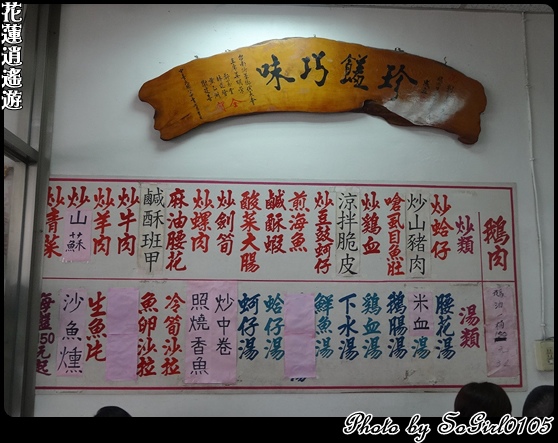 花蓮逍遙遊
珍饈巧味
鵝肉
炒類
炒蛤仔
炒山豬肉
嗆虱目魚莊
炒鵝血
涼拌脆皮
炒豆鼓蚵仔
煎海魚
鹹酥蝦
酸菜大腸
炒劍筍
炒螺肉
麻油腰花
鹹酥班甲
炒牛肉
炒羊肉
炒山蘇
炒青菜
湯類
腰花湯
米血湯
鵝腸湯
鵝血湯
下水湯
鮮魚湯
湯
蛤仔湯
蚵仔湯
炒中卷
照燒香魚
冷筍沙拉
魚卵沙拉
生魚片
沙魚燻
每盤50元起
Photo by SoGirl0105